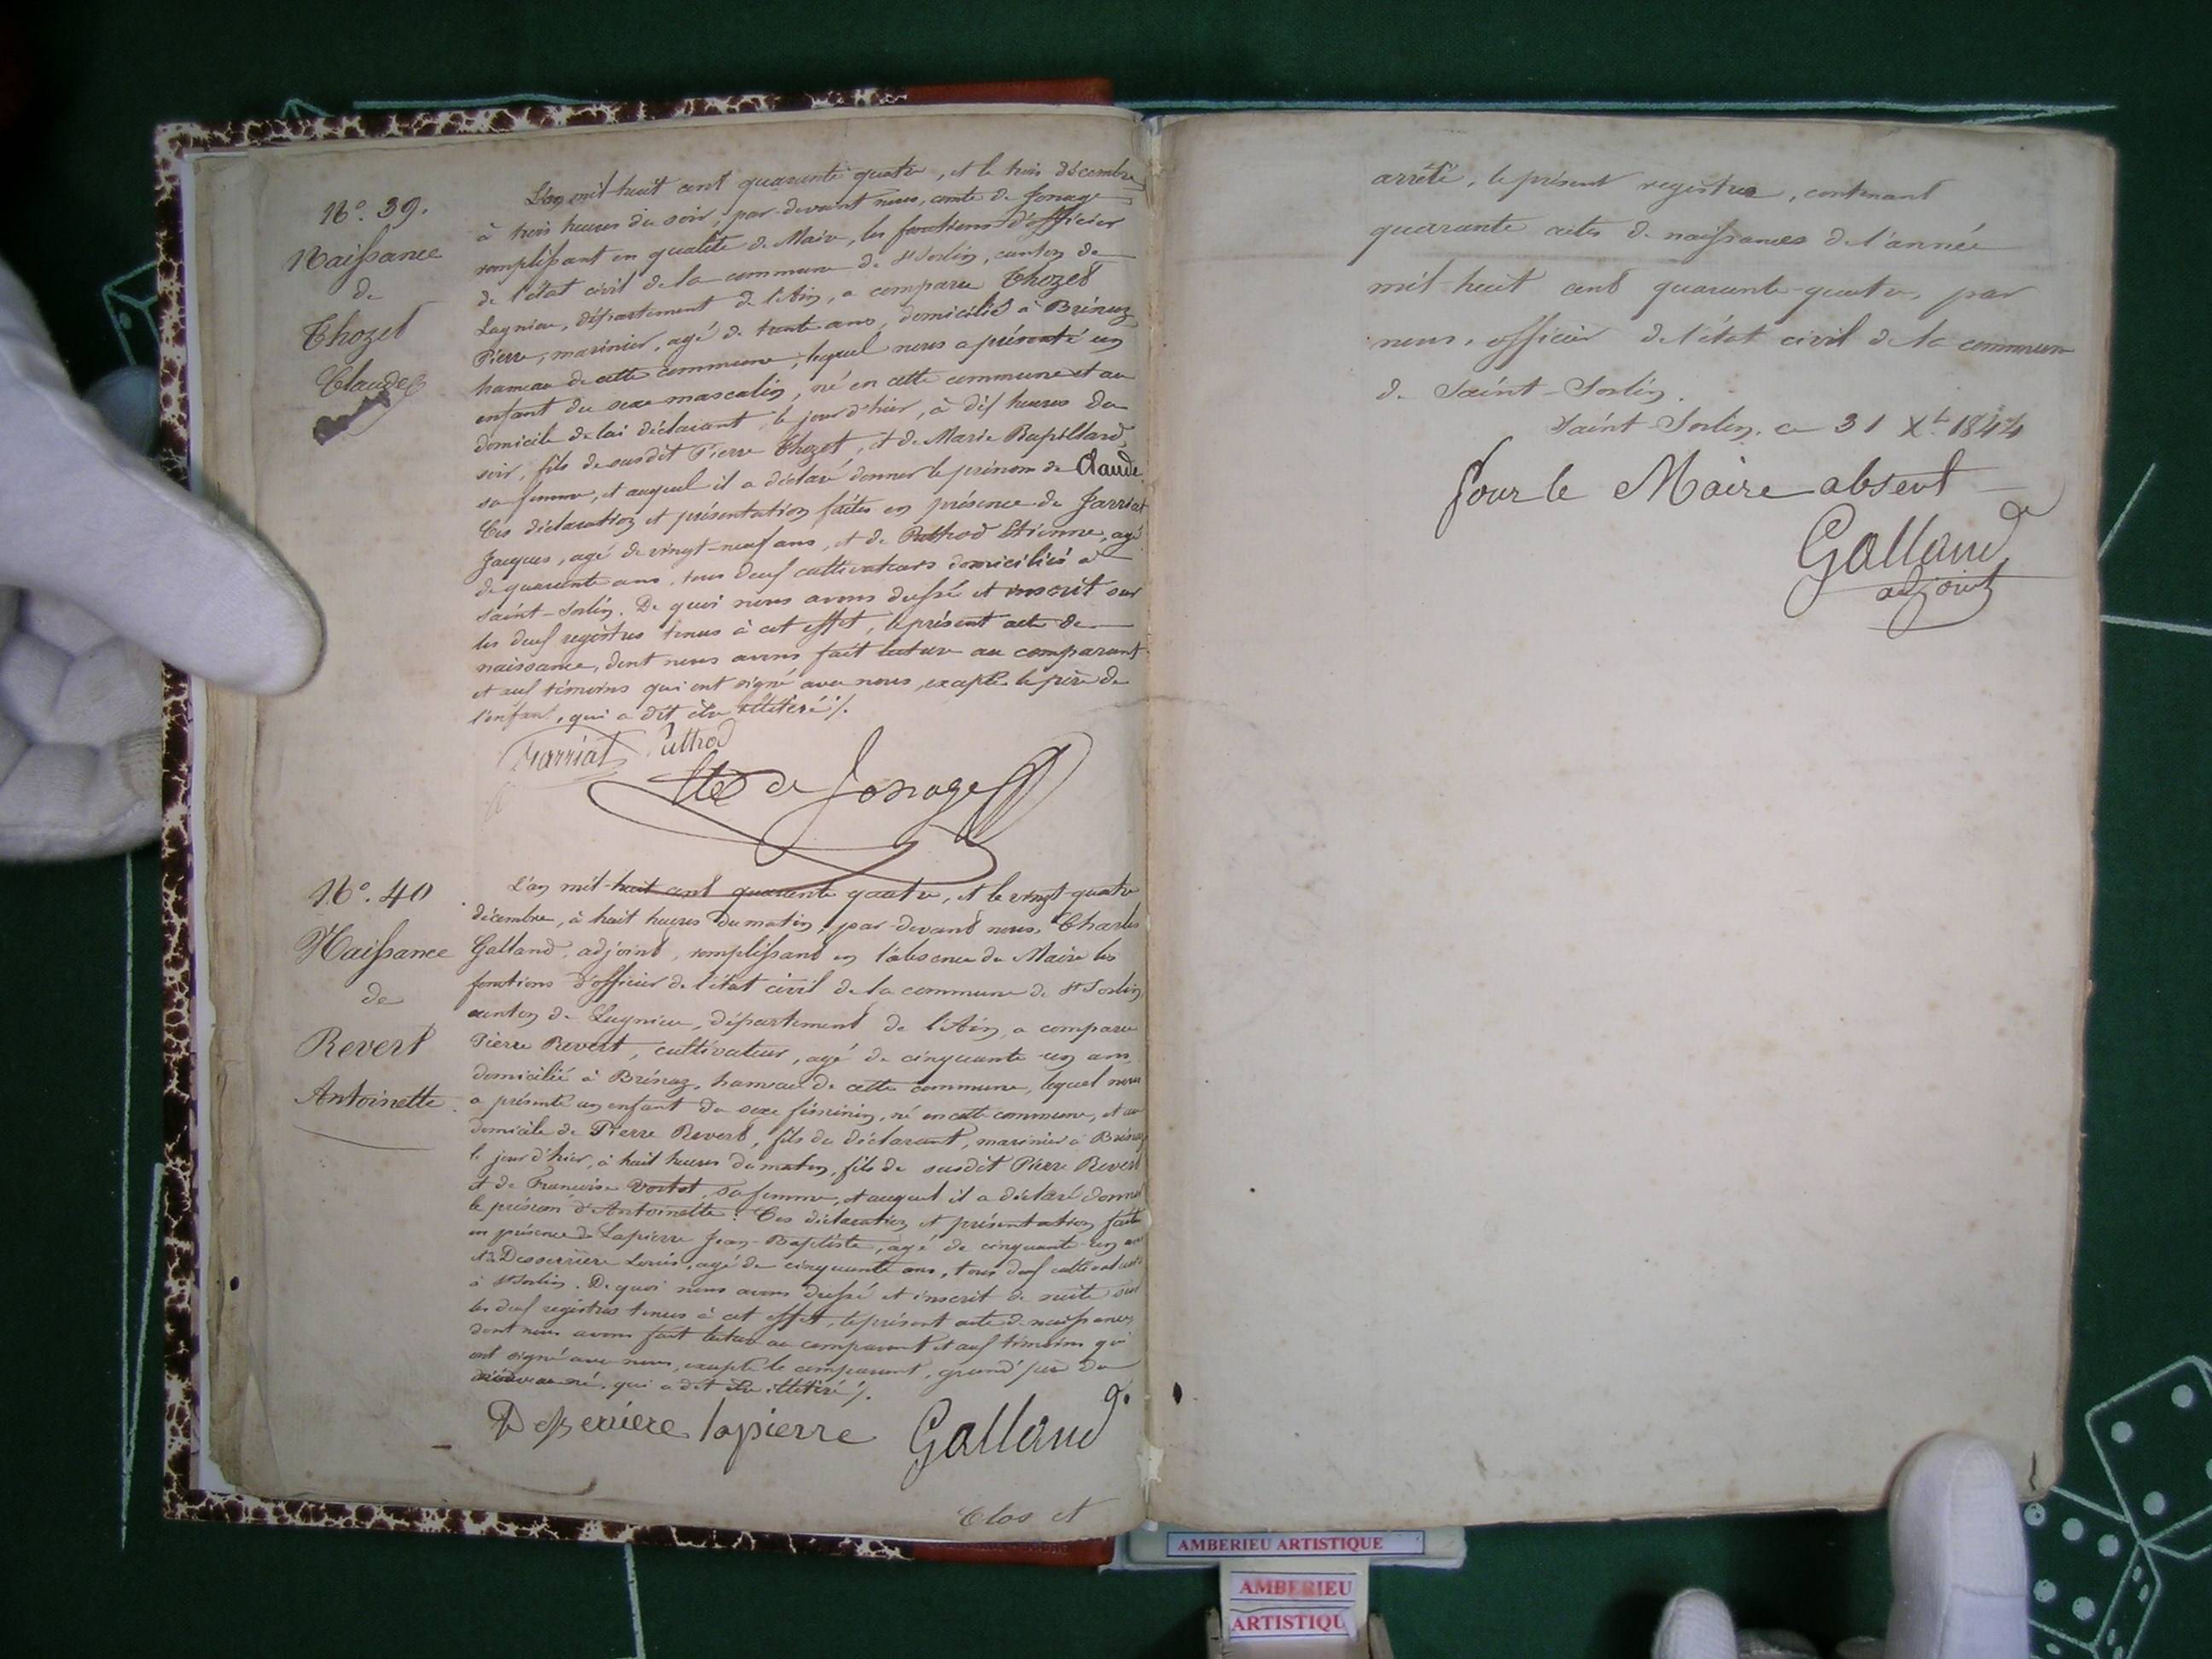 N.º 39.
Naissance
de
Thozet
Claude
L'an mil-huit cent quarante quatre, et le trois décembre
à trois heures du soir, par-devant nous, comte de Jonage
remplissant en qualité de Maire, les fonctions d'officier
de l'état civil de la commune de St Sorlin, canton de
Lagnieu, département de l'Ain, a comparu Thozet
Pierre, marinier, agé de trente ans, domicilié à Brénaz
hameau de cette commune, lequel nous a présenté un
enfant du sexe masculin, né en cette commune et au
domicile de lui déclarant, le jour d'hier, à dix heures du
soir, fils de susdit Pierre Thozet, et de Marie Papillard
sa femme, et auquel il a déclaré donner le prénom de Claude.
Ces déclaration et présentation faites en présence de Jarriat
Jacques, agé de vingt-neuf ans, et de Puthod Etienne, agé
de quarante ans, tous deux cultivateurs domiciliés à
Saint-Sorlin. De quoi nous avons dressé et inscrit sur
les deux registres tenus à cet effet, le présent acte de
naissance, dont nous avons fait lecture au comparant
et aux témoins qui ont signé avec nous, excepté le père de
l'enfant, qui a dit être illétéré /.
Jarriat Puthod
Cte de Jonage
N.º 40
Naissance
de
Revert
Antoinette
L'an mil-huit cent quarante quatre, et le vingt-quatre
décembre, à huit heures du matin, par-devant nous, Charles
Galland, adjoint, remplissant en l'absence du Maire les
fonctions d'officier de l'état civil de la commune de St Sorlin,
canton de Lagnieu, département de l'Ain, a comparu
Pierre Revert, cultivateur, agé de cinquante-un ans,
domicilié à Brénaz, hameau de cette commune, lequel nous
a présenté un enfant du sexe féminin, né en cette commune, et au
domicile de Pierre Revert, fils du déclarant, marinier à Brénaz
le jour d'hier, à huit heures du matin, fils de susdit Pierre Revert
et de Francoise sa femme, et auquel il a déclaré donner
le prénom d'Antoinette. Ces déclaration et présentation faites
en présence de Lapierre Jean-Baptiste, agé de cinquante-un ans
et de Desserriere Louis, agé de cinquante ans, tous deux cultivateurs
à St Sorlin. De quoi nous avons dressé et inscrit de suite sur
les deux registres tenus à cet effet, le présent acte de naissance,
dont nous avons fait lecture au comparant et aux témoins qui
ont signé avec nous, excepté le comparant, grand père du
nouveau né, qui a dit être illétéré /.
Desserriere lapierre Galland
Clos et
arrêté, le présent registre, contenant
quarante actes de naissances de l'année
mil-huit cent quarante-quatre, par
nous, officier de l'état civil de la commune
de Saint-Sorlin.
Saint Sorlin, ce 31 Xbre 1844
Pour le Maire absent
Galland
adjoint
AMBERIEU ARTISTIQUE
AMBERIEU
ARTISTIQU